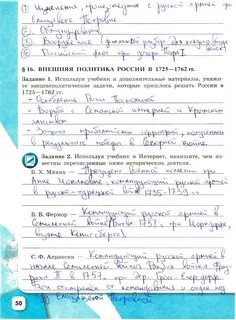 1) Изменения, проведённые с русской армией при
Елизавете Петровне
2) Обмундирование
3) Вооружение
4)
§ 16. ВНЕШНЯЯ ПОЛИТИКА РОССИИ В 1725—1762 гг.
Задание 1. Используя учебник и дополнительные материалы, укажи-
те внешнеполитические задачи, которые пришлось решать России в
1725—1762 гг.
- Ослабление Речи Посполитой
- Борьба с Османской империей и Крымским
ханством
- Защита прибалтийских территорий, полученных в
результате победы в Северной войне.
Задание 2. Используя учебник и Интернет, напишите, чем из-
вестны перечисленные ниже исторические деятели.
Б. Х. Миних Президент Военной коллегии при
Анне Иоанновне; командующий русской армией
в русско-турецкой войне 1735-1739 гг.
В. В. Фермор Командующий русской армией в
Семилетней войне
взятие Кёнигсберга
С. Ф. Апраксин Командующий русской армией в
начале Семилетней войны.
II в 1757 г. при дер. Гросс-Егерсдорф.
Был отстранён от командования и отдан под
суд Елизаветой Петровной
50